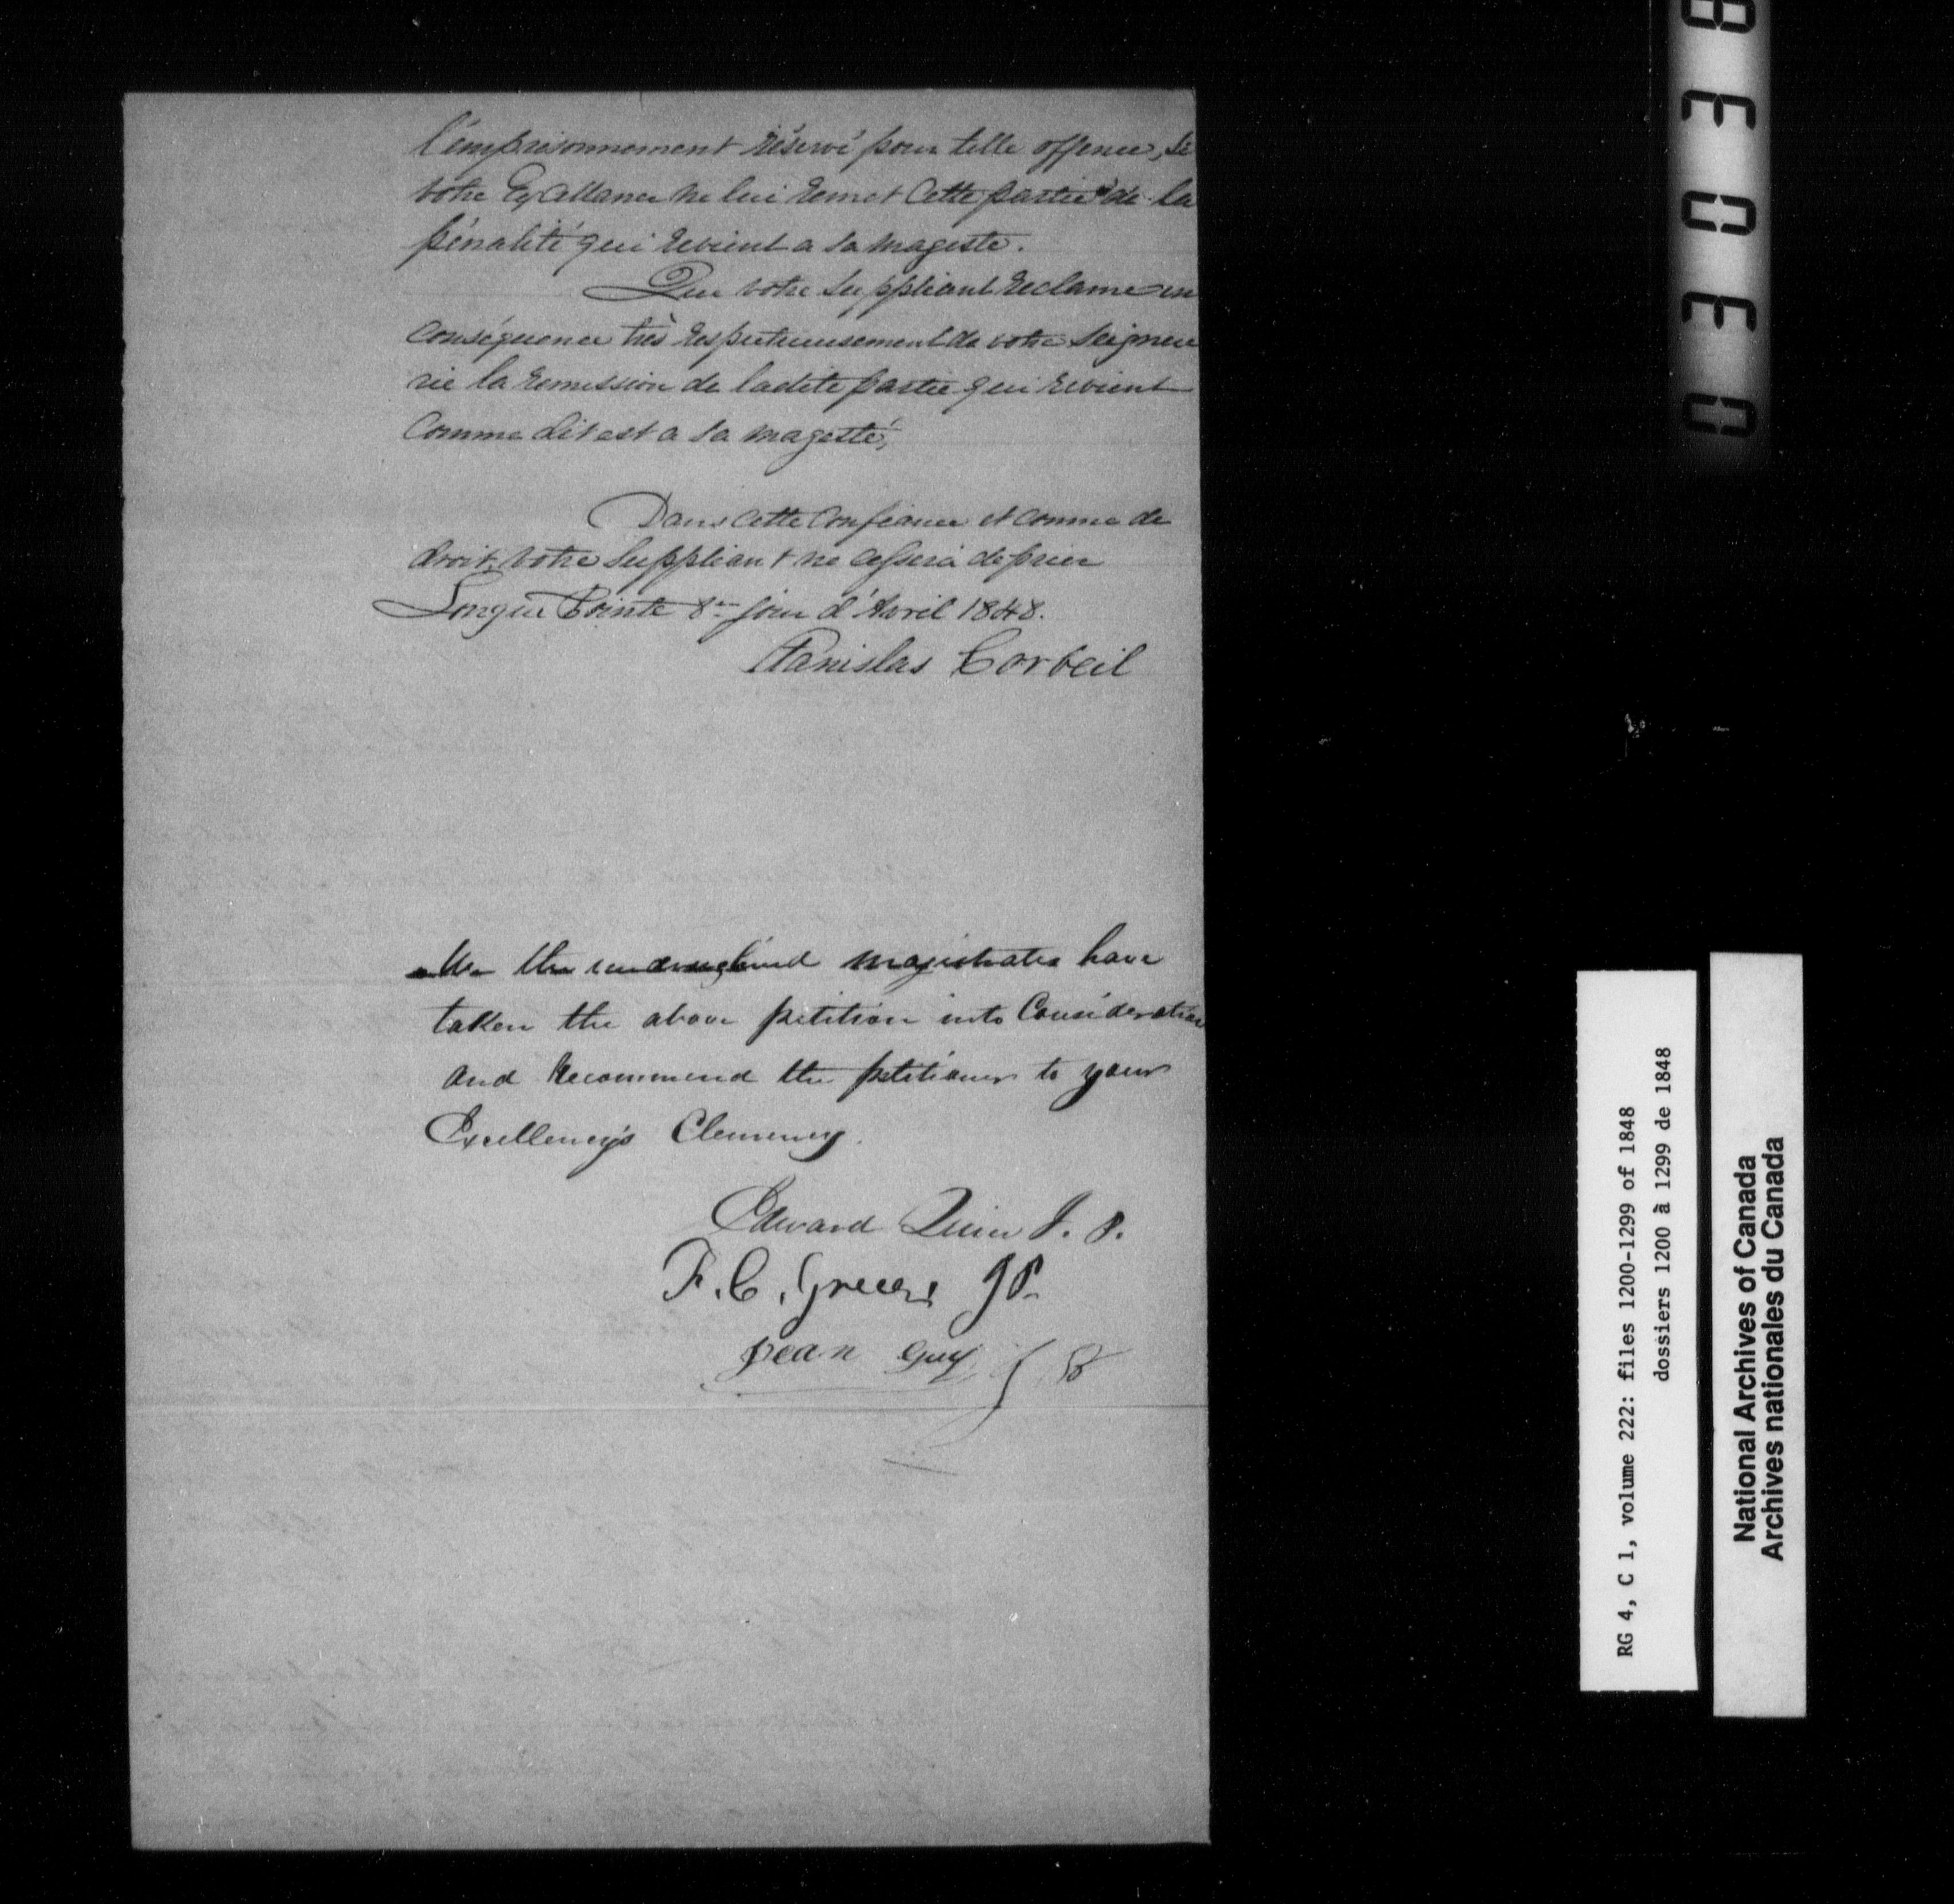 l'emprisonnement réservé pour telle offence, si
votre Excellance ne lui remet cette partie de la
pénalité qui revient a sa mageste.
Que votre Suppliant réclame en
conséquence très respectueusement de votre Seigneu
rie la remission de ladite partie qui revient
comme dit est a sa magesté,
Dans cette confiance et comme de
droit, votre Suppliant ne cessera de prier
Longue Pointe 8me jour d'Avril 1848.
Stanislas Corbeil
We the undersigned magistrates have
taken the above petition into Consideration
and Recommend the petitioner to your
Excellency's Clemency.
Edward Quin J. P.
F. C. JP.
jean Guy
03038
RG 4, C 1, volume 222: files 1200-1299 of 1848
dossiers 1200 à 1299 de 1848
National Archives of Canada
Archives nationales du Canada